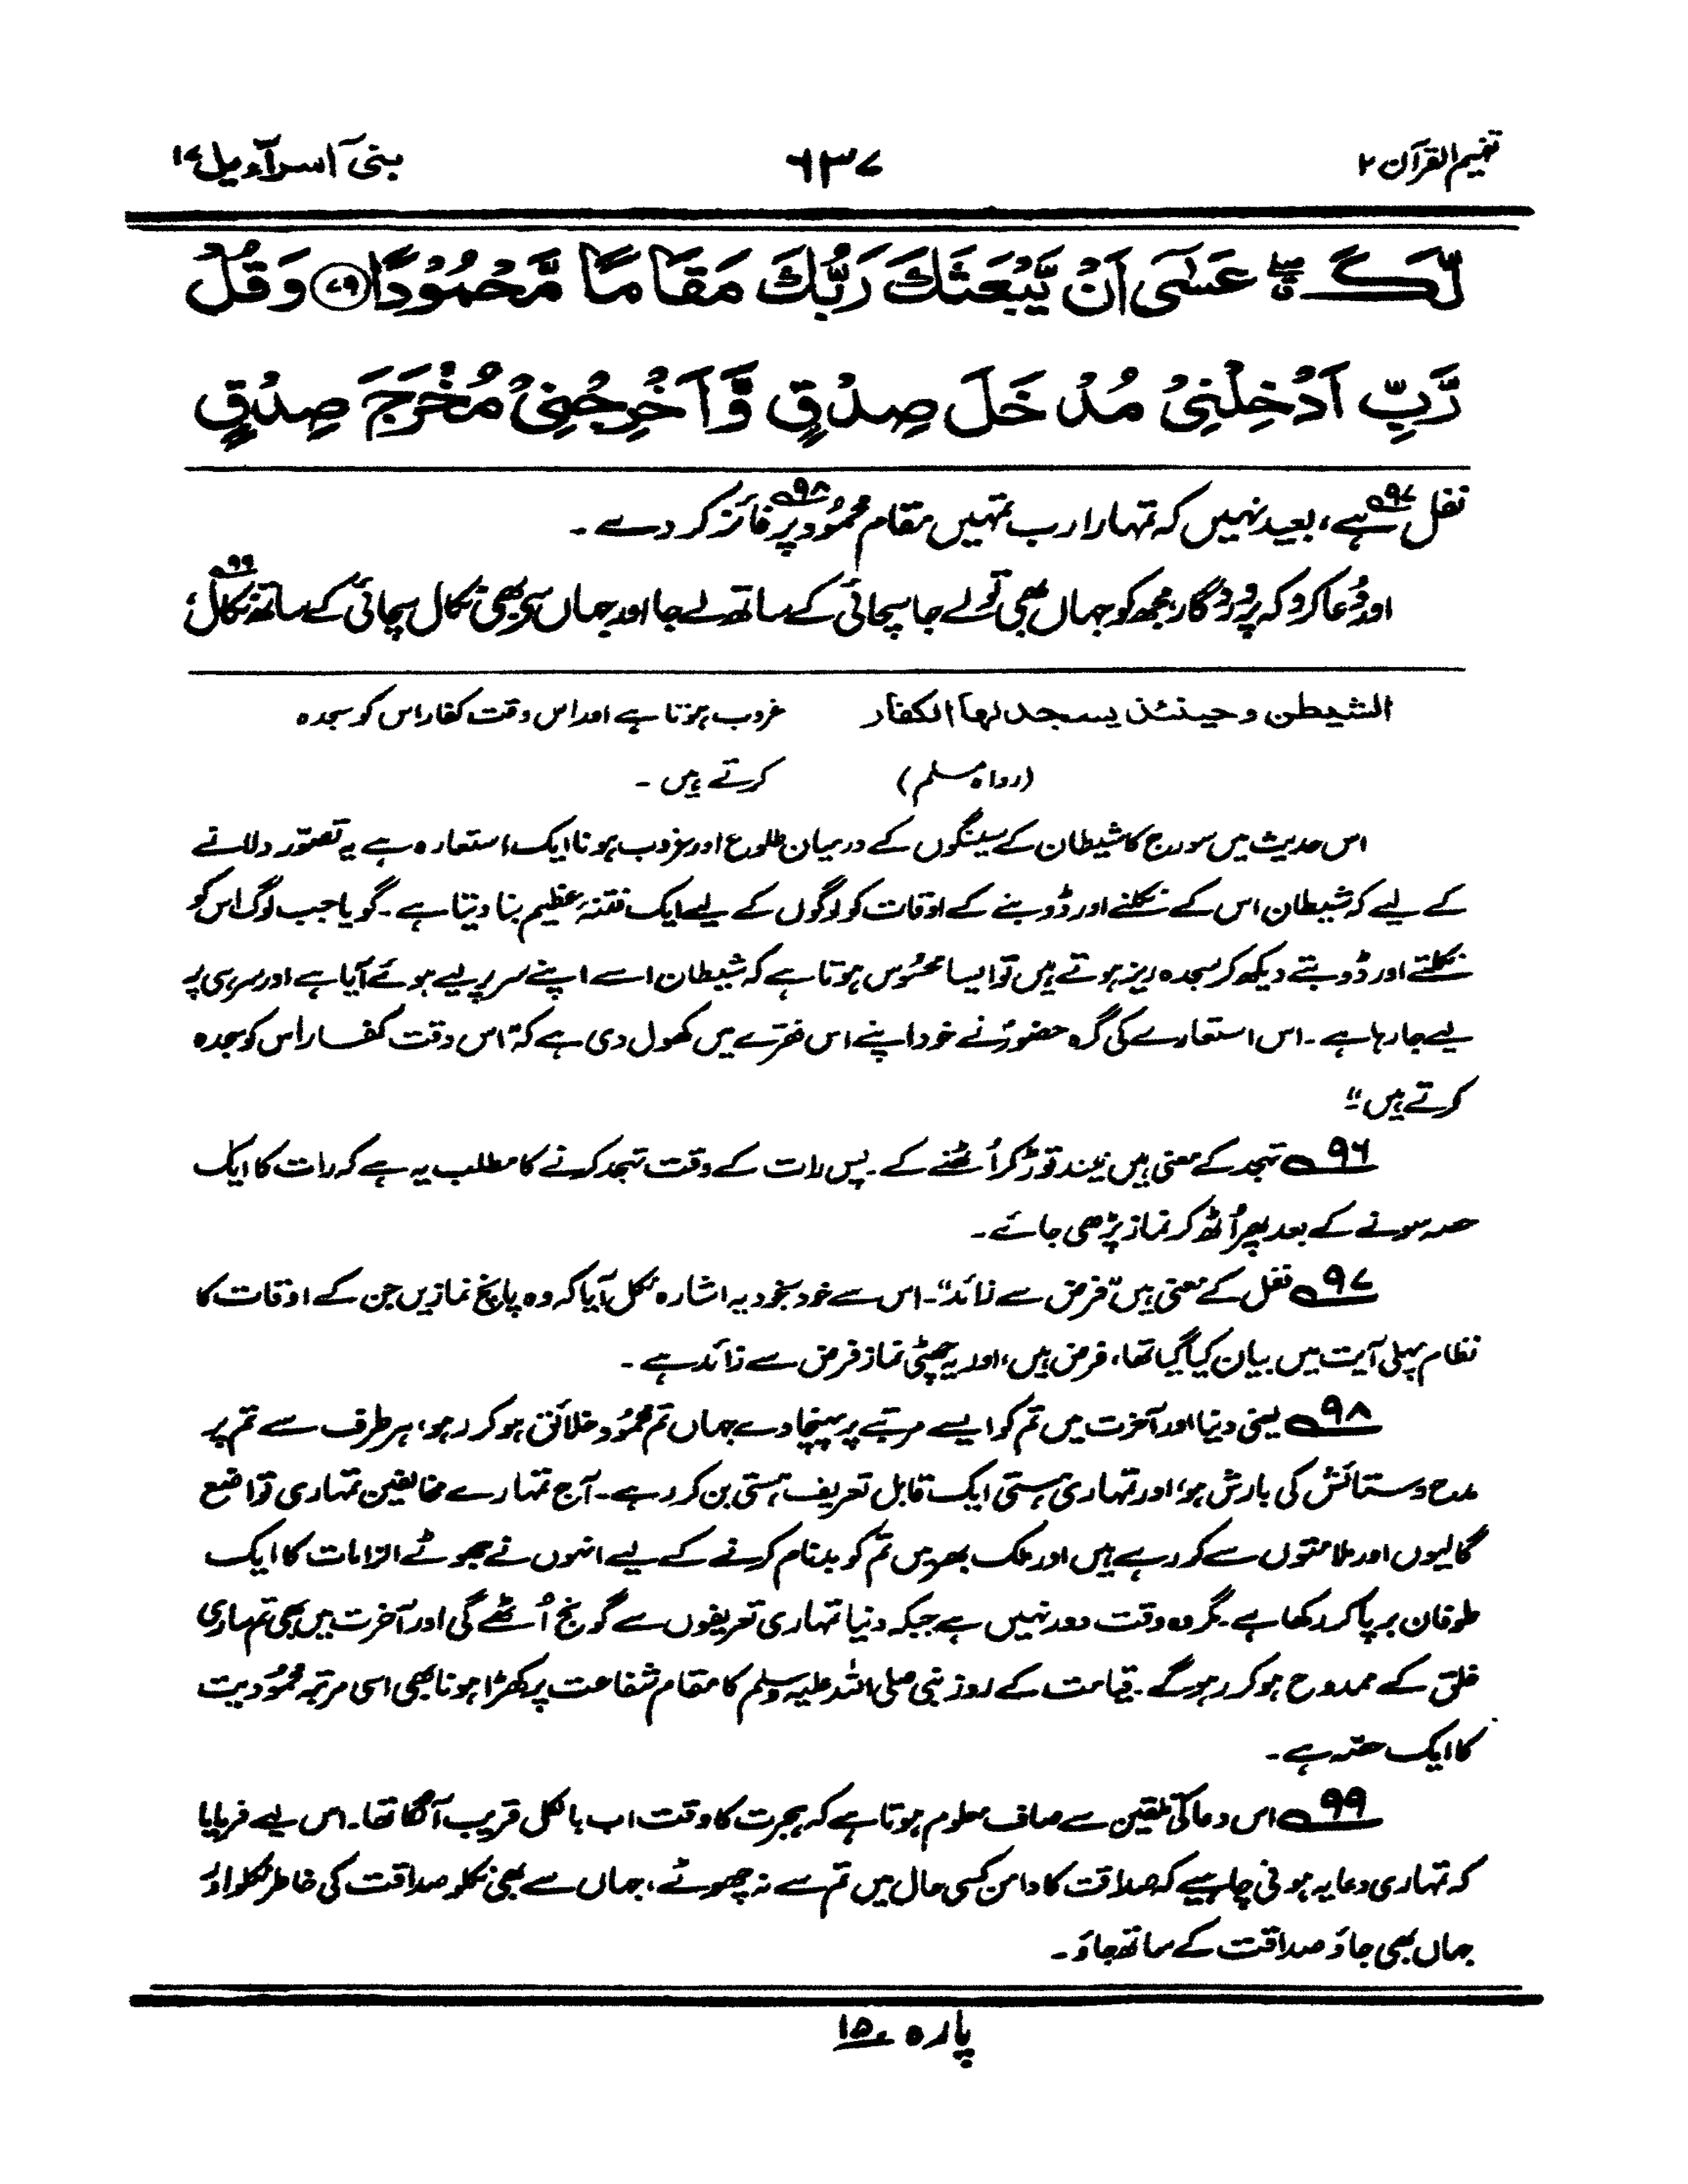 تفہیم القرآن ۲
۶۳۷
بنیٓ اسرآءیل ۱۷
لَّكَ ۖۗ عَسٰۤى اَنْ يَّبْعَثَكَ رَبُّكَ مَقَامًا مَّحْمُوْدًا ﴿۷۹﴾ وَقُلْ
رَّبِّ اَدْخِلْنِيْ مُدْخَلَ صِدْقٍ وَّاَخْرِجْنِيْ مُخْرَجَ صِدْقٍ
نفل۹۷ ہے، بعید نہیں کہ تمہارا رب تمہیں مقام محمُود۹۸ پر فائز کر دے ۔
اور دُعا کرو کہ پروردگار، مجھ کو جہاں بھی تُو لے جا سچائی کے ساتھ لے جا اور جہاں سے بھی نکال سچائی کے ساتھ نکال۹۹،
الشیطٰن و حینئذ یسجد لھا الکفار
غروب ہوتا ہے اور اس وقت کفار اس کو سجدہ
(رواہ مسلم)
کرتے ہیں ۔
اس حدیث میں سورج کا شیطان کے سینگوں کے درمیان طلوع اور غروب ہونا ایک استعارہ ہے یہ تصوّر دلانے
کے لیے کہ شیطان اس کے نکلنے اور ڈوبنے کے اوقات کو لوگوں کے لیے ایک فتنۂ عظیم بنا دیتا ہے ۔ گویا جب لوگ اس کو
نکلتے اور ڈوبتے دیکھ کر سجدہ ریز ہوتے ہیں تو ایسا محسُوس ہوتا ہے کہ شیطان اسے اپنے سر پر لیے ہوئے آیا ہے اور سر ہی پہ
لیے جا رہا ہے ۔ اس استعارے کی گرہ حضورؐ نے خود اپنے اس فقرے میں کھول دی ہے کہ ”اس وقت کفار اس کو سجدہ
کرتے ہیں“۔
۹۶ تہجد کے معنی ہیں نیند توڑ کر اُٹھنے کے ۔ پس رات کے وقت تہجد کرنے کا مطلب یہ ہے کہ رات کا ایک
حصہ سونے کے بعد پھر اُٹھ کر نماز پڑھی جائے ۔
۹۷ نفل کے معنی ہیں ”فرض سے زائد“۔ اس سے خود بخود یہ اشارہ نکل آیا کہ وہ پانچ نمازیں جن کے اوقات کا
نظام پہلی آیت میں بیان کیا گیا تھا، فرض ہیں، اور یہ چھٹی نماز فرض سے زائد ہے ۔
۹۸ یعنی دنیا اور آخرت میں تم کو ایسے مرتبے پر پہنچا دے جہاں تم محمُود خلائق ہو کر رہو، ہر طرف سے تم پر
مدح و ستائش کی بارش ہو، اور تمہاری ہستی ایک قابل تعریف ہستی بن کر رہے ۔ آج تمہارے مخالفین تمہاری تواضع
گالیوں اور ملامتوں سے کر رہے ہیں اور ملک بھر میں تم کو بدنام کرنے کے لیے انہوں نے جھوٹے الزامات کا ایک
طوفان برپا کر رکھا ہے ۔ مگر وہ وقت دور نہیں ہے جبکہ دنیا تمہاری تعریفوں سے گونج اُٹھے گی اور آخرت میں بھی تم ساری
خلق کے ممدوح ہو کر رہو گے ۔ قیامت کے روز نبی صلی اللہ علیہ وسلم کا مقام شفاعت پر کھڑا ہونا بھی اسی مرتبۂ محمُودیت
کا ایک حصّہ ہے ۔
۹۹ اس دعا کی تلقین سے صاف معلوم ہوتا ہے کہ ہجرت کا وقت اب بالکل قریب آ لگا تھا۔ اس لیے فرمایا
کہ تمہاری دعا یہ ہونی چاہیے کہ صداقت کا دامن کسی حال میں تم سے نہ چھوٹے، جہاں سے بھی نکلو صداقت کی خاطر نکلو اور
جہاں بھی جاؤ صداقت کے ساتھ جاؤ ۔
پارہ ۱۵